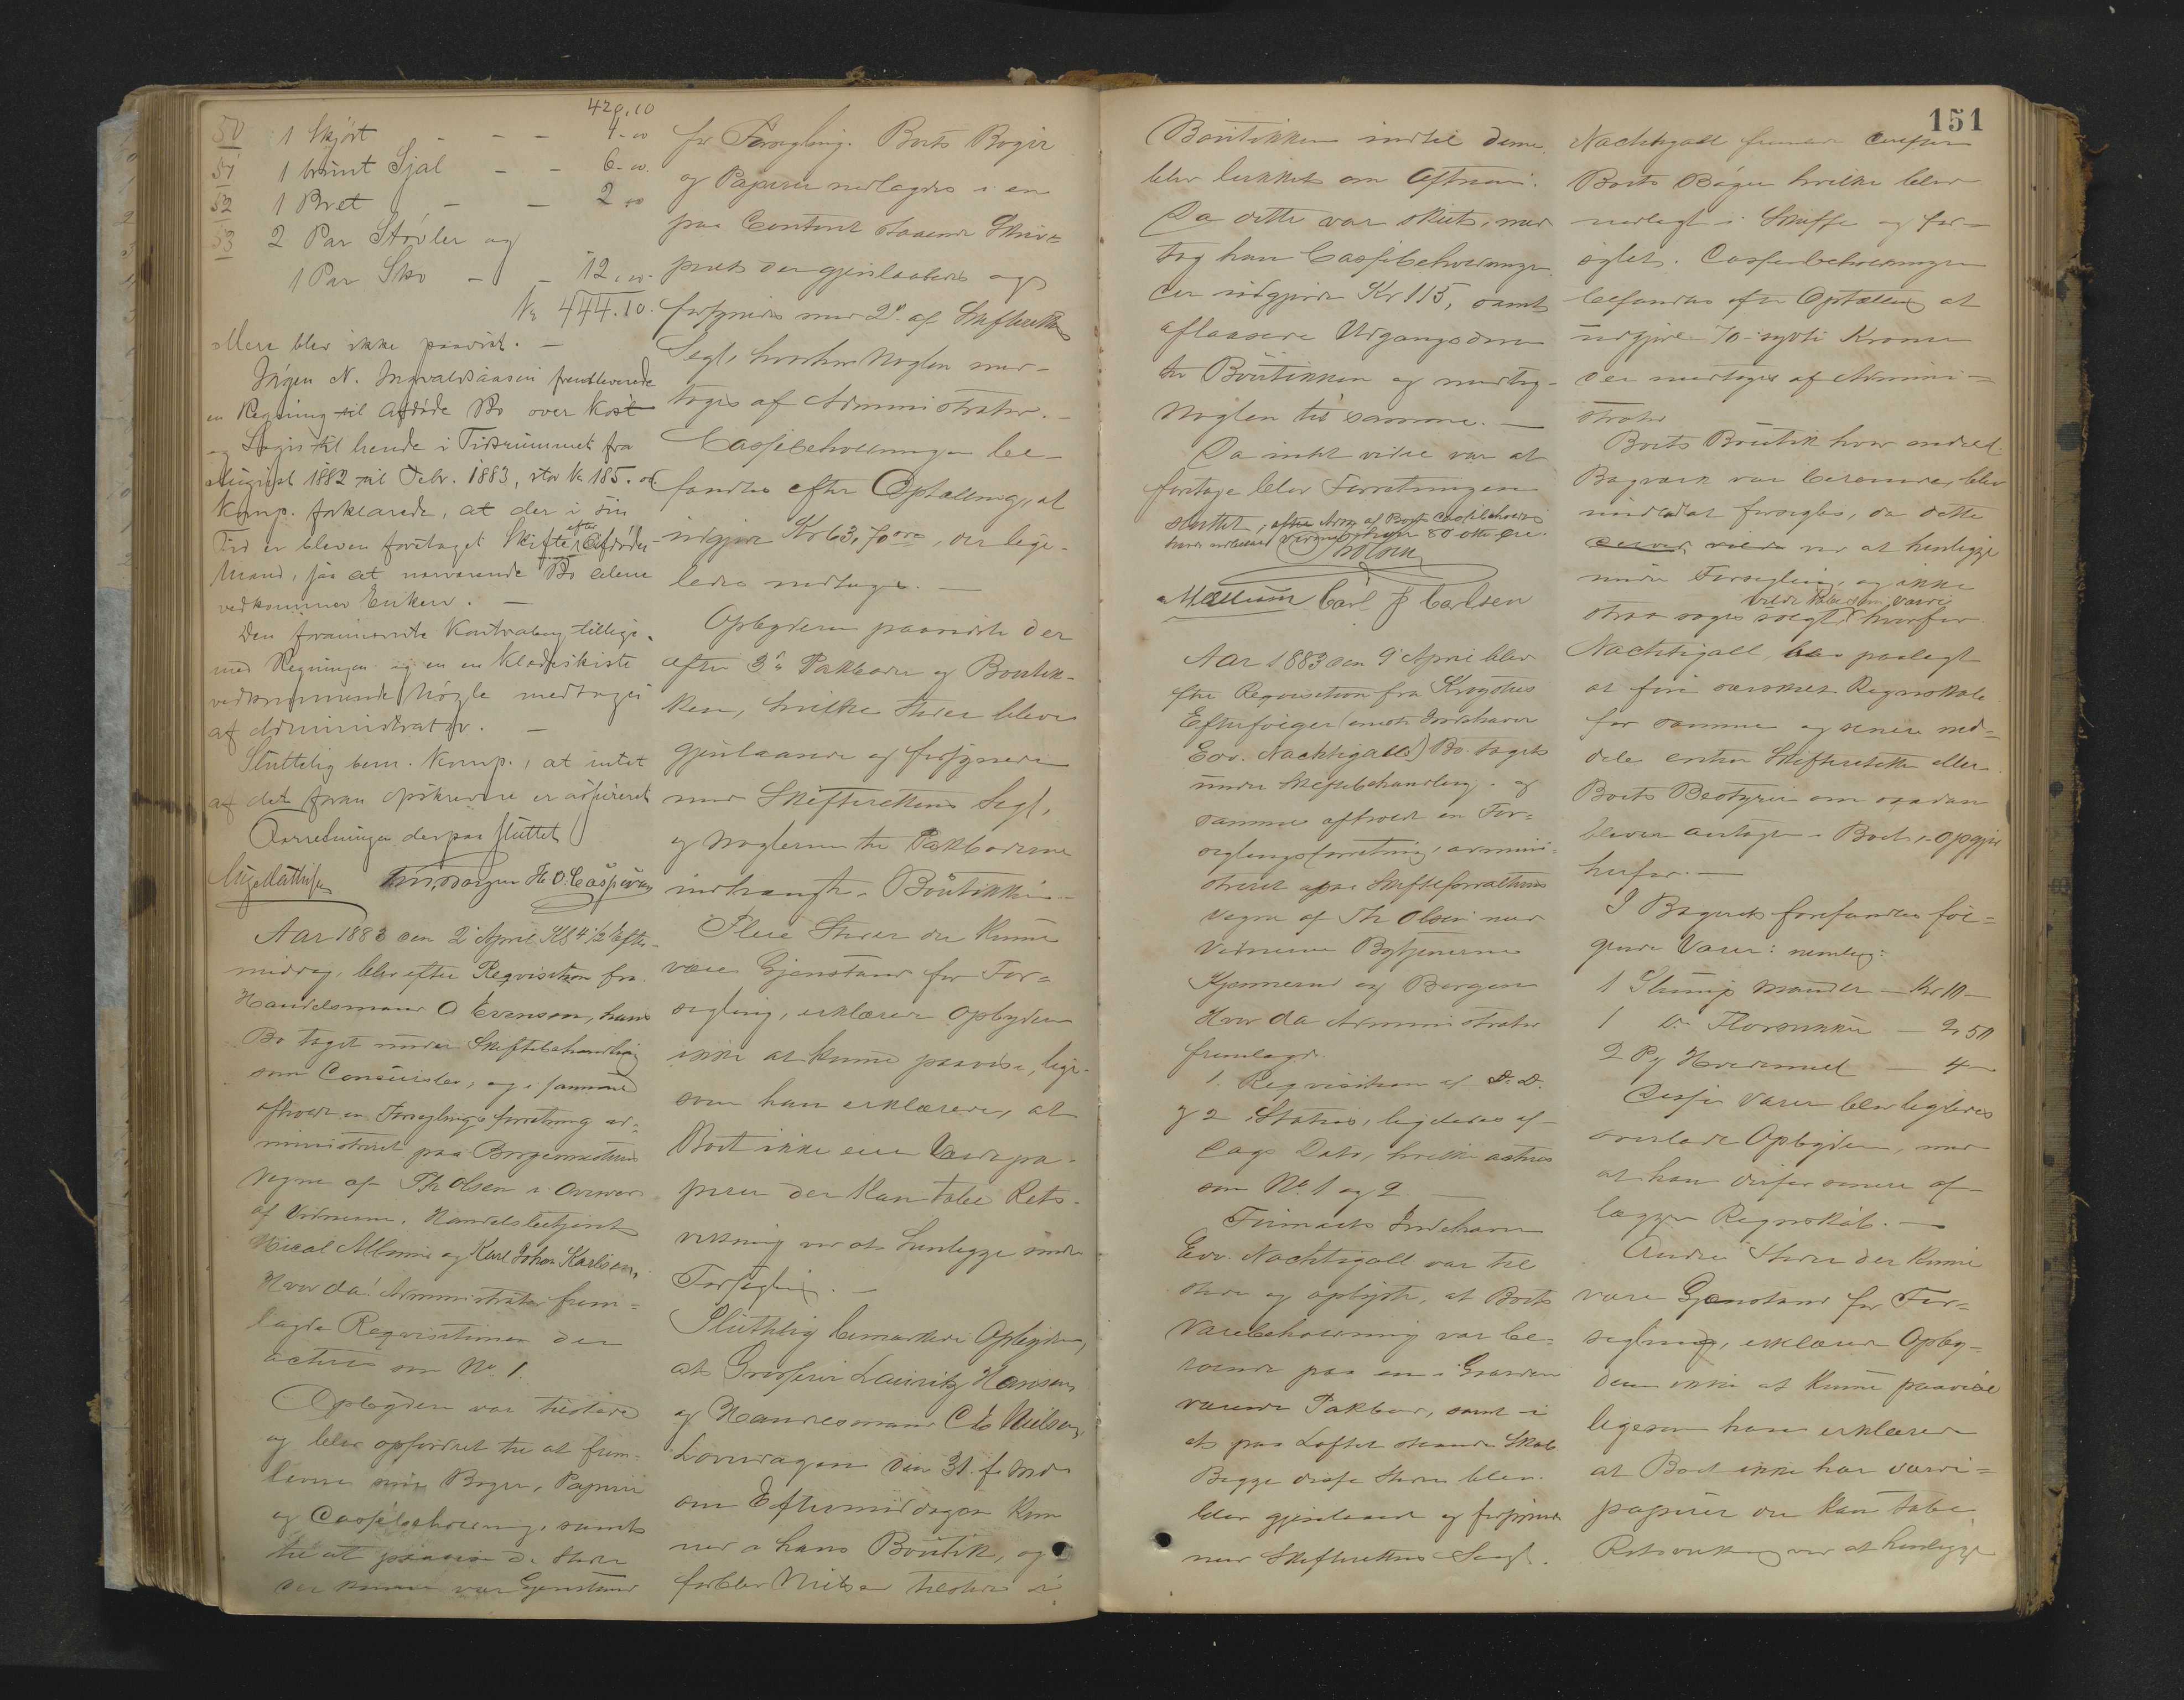 420,10
50 1 Skjört - - - 4-00
51 1 brunt Sjal - - 6-00.
52 1 Bret - - 2 00
53 2 Par Stövler og
1 Par Sko - - 12,00.
Kr 444.10.
Mere blev ikke paavist. —
N. Ingvaldsaasen fremleverede
en Regning til Afdöde Bo over Kost
og Logis til hende i Tidsrummet fra
August 1882 til Febr. 1883, stor Kr 185.00
Komp. forklarede, at der i sin
Tid er bleven foretaget Skifte efter Afdödes
Mand, saa at nærværende Bo alene
vedkommer Enken. —
Den forannævnte Kontrabog tillige-
med Regningen og en en Klædeskiste
vedkommende Nögle medtoges
af Administrator. —
Sluttelig bem. Komp., at intet
af det foran opskrevne er assureret
Forretningen derpaa sluttet
Aage Mathisen H. O. Caspersen
Aar 1883 den 2 April Kl 4 1/2 Efter-
middag, blev efter Reqvisition fra
Handelsmand O Evensen, hans
Bo taget under Skiftebehandling
som Concursbo, og i samme
afholdt en Forseglingsforretning ad-
ministreret paa Borgermesterens
Vegne af Th Olsen i Overvær
af Vidnerne, Handelsbetjent
Micael Mællum og Karl Johan Karlsen,
Hvor da! Administrator frem-
lagde Reqvisitionen der
acteres som No 1.
Opbyderen var tilstede
og blev opfordret til at frem-
levere sine Böger, Papirer
og Cassebeholdning, samt
til at paavise de Steder
der kunne være Gjenstand
for Forsegling. Boets Böger
og Papirer nedlagdes i en
paa Contoret staaende Skriv-
pult der gjenlaasedes og
forsynedes med 2de af Skifterettens
Segl, hvorhos Nöglen med-
toges af Administrator. —
Cassebeholdningen be-
fandtes efter Optælling, at
udgjöre Kr 63, 70 öre, der lige-
ledes medtoges. —
Opbyderen paaviste der
efter 3de Pakboder og Boutik-
ken, hvilke Steder bleve
gjenlaasede og forsynede
med Skifterettens Segl,
og Nöglerne til Pakboderne
indhængt i Boutikken. —
Flere Steder der kunne
være Gjenstand for For-
segling, erklærede Opbyderen
ikke at kunne paavise, lige-
som han erklærede, at
Boet ikke eier Værdipa-
pirer der kan tabe Rets-
virkning ved at henligge under
Forsegling. —
Sluttelig bemærkede Opbyderen,
at Grosserer Lauritz Hansen
og Handelsmand Chr Nielsen
Löverdagen den 31. f. Md.
om Eftermiddagen kom
ned i hans Boutik, og
forblev Nielsen tilstede i
151
Boutikken indtil denne
blev lukket om Aftenen.
Da dette var skeet, med
tog han Cassebeholdningen
der udgjorde Kr 115, samt
aflaasede Udgangsdören
til Boutikken og medtog
Nöglen til samme. —
Da intet videre var at
foretage blev Forretningen
sluttet, efter
80 otte öre.
Th Olsen
M Mællum Carl J Carlsen
Aar 1883 den 9 April blev
efter Reqvisition fra Krogsties
Efterfölger (eneste Indehaver
Edv. Nachtigall) Bo taget
under Skiftebehandling, og
samme afholdt en For-
seglingsforretning, admini-
streret paa Skifteforvalterens
Vegne af Th Olsen med
Vidnerne Bytjenerne
Kjennerud og Borgen
Hvor da Administrator
fremlagde.
1. Reqvisition af D. D.
og 2 Status, ligeledes af
Dags Dato, hvilke acteres
som No. 1 og 2. —
Firmaets Indehaver
Edv. Nachtigall var til
stede og oplyste, at Boets
Varebeholdning var be-
roende paa en i Gaarden
værende Pakbod, samt i
et paa Loftet staaende Skab.
Begge disse Steder blev
blev gjenlaaset og forsynet
med Skifterettens Segl.
Nachtigall fremlagde derefter
Boets Böger hvilke blev
nedlagt i Skuffe og for-
seglet. Cassebeholdningen
befandtes efter Optælling at
udgjöre 70 - sytti Kroner
der medtoges af Admini-
strator
Boets Boutik hvor endel
Bagværk var beroende, blev
undladt forseglet, da dette
ved at henligge
under Forsegling, og ikke
strax söges solgt, vilde tabe i sin Værdi hvorfor
Nachtigall blev paalagt
at före særskilt Regnskab
for samme og senere med-
dele enten Skifteretten eller
Boets Bestyrer om saadan
bliver antaget i Boet, Opgjör
herfor. —
I Bageriet forefandtes föl-
gende Varer: nemlig:
1 Slump Mandler — Kr 10 —
1 Do Flormukker — 2,50
2 Pg Hvedemel — 4 —
Disse Varer blev ligeledes
overladt Opbyderen, mod
at han derfor senere af-
lægger Regnskab. —
Andre Steder der kunne
være Gjenstand for For-
segling, erklærede Opby-
deren ikke at kunne paavise
ligesom han erklærede
at Boet ikke har værdi-
papirer der kan tabe
Retsvirkning ved at henligge